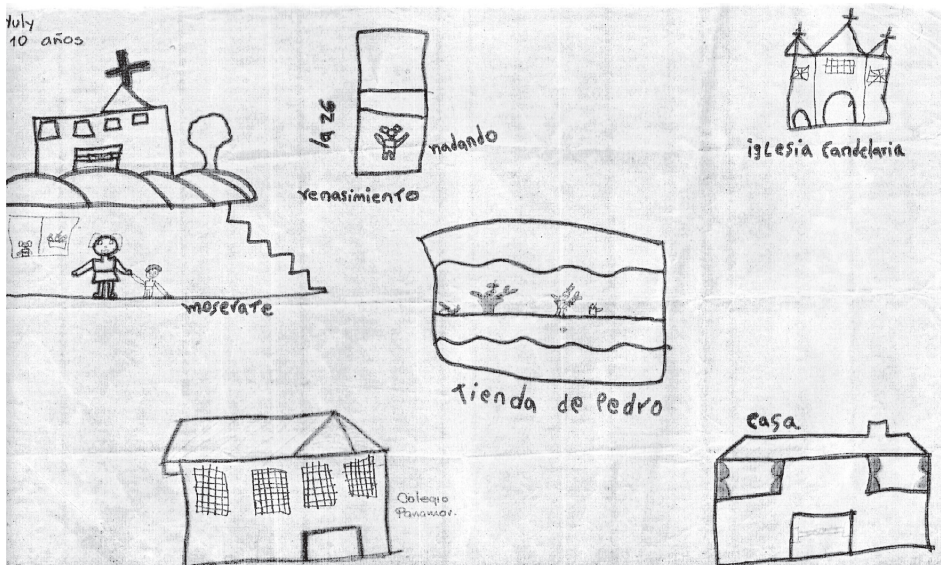 Yuly
10 años
la 26
nadando
renasimiento
iglesia Candelaria
moserate
Tienda de Pedro
casa
Colegio
Panamor.